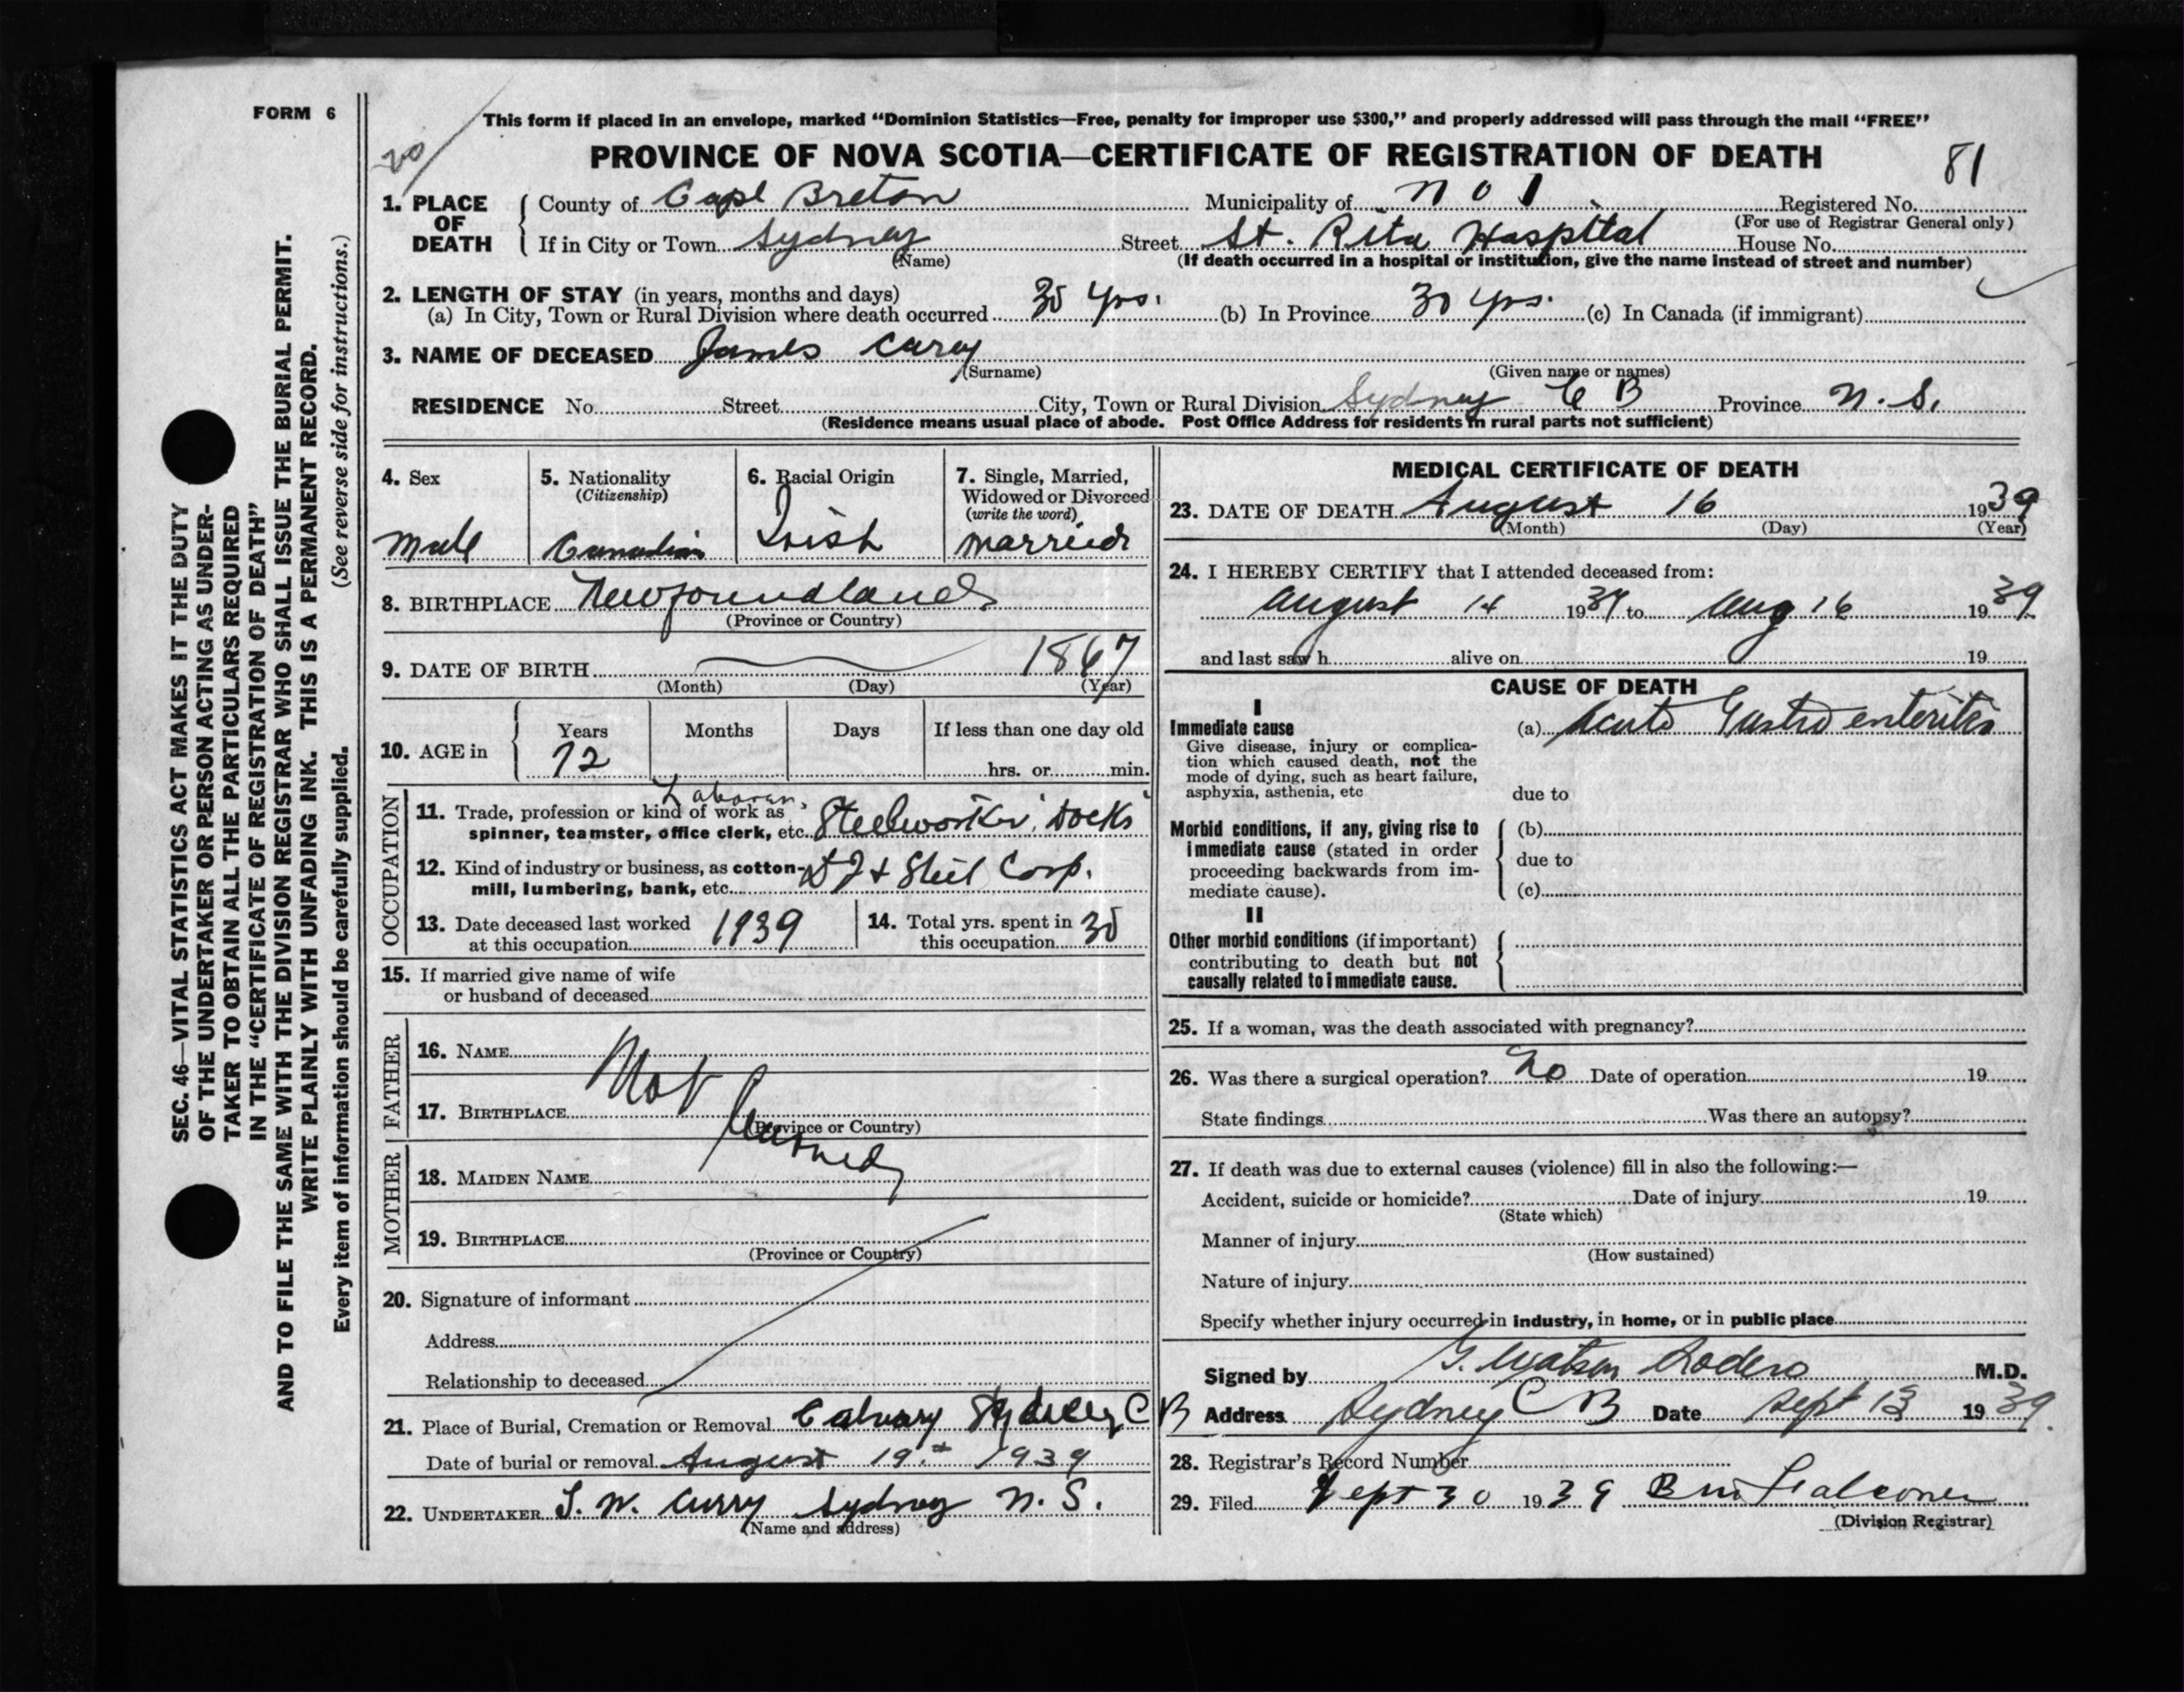 FORM 6
This form if placed in an envelope, marked “Dominion Statistics—Free, penalty for improper use $300,” and properly addressed will pass through the mail “FREE”
20
PROVINCE OF NOVA SCOTIA—CERTIFICATE OF REGISTRATION OF DEATH
81
1. PLACE OF DEATH
County of Cape Breton Municipality of No 1 Registered No.
(For use of Registrar General only)
If in City or Town Sydney Street St. Rita Hospital House No.
(Name) (If death occurred in a hospital or institution, give the name instead of street and number)
2. LENGTH OF STAY (in years, months and days)
(a) In City, Town or Rural Division where death occurred 30 yrs. (b) In Province 30 yrs. (c) In Canada (if immigrant)
3. NAME OF DECEASED James Carey
(Surname) (Given name or names)
RESIDENCE No. Street City, Town or Rural Division Sydney C B Province N. S.
(Residence means usual place of abode. Post Office Address for residents in rural parts not sufficient)
4. Sex
Male
5. Nationality
(Citizenship)
Canadian
6. Racial Origin
Irish
7. Single, Married,
Widowed or Divorced
(write the word)
Married
8. BIRTHPLACE Newfoundland
(Province or Country)
9. DATE OF BIRTH 1867
(Month) (Day) (Year)
10. AGE in
Years Months Days If less than one day old
72 hrs. or min.
OCCUPATION
Laborer,
11. Trade, profession or kind of work as
spinner, teamster, office clerk, etc. Steelworker, Docks
12. Kind of industry or business, as cotton-
mill, lumbering, bank, etc. D I & Steel Corp.
13. Date deceased last worked
at this occupation 1939
14. Total yrs. spent in
this occupation 30
15. If married give name of wife
or husband of deceased
FATHER
16. NAME
Not
17. BIRTHPLACE
(Province or Country)
MOTHER
18. MAIDEN NAME
19. BIRTHPLACE
(Province or Country)
20. Signature of informant
Address
Relationship to deceased
21. Place of Burial, Cremation or Removal Calvary Sydney C B
Date of burial or removal August 19th 1939
22. UNDERTAKER T. W. Curry Sydney N. S.
(Name and address)
MEDICAL CERTIFICATE OF DEATH
23. DATE OF DEATH August 16 1939
(Month) (Day) (Year)
24. I HEREBY CERTIFY that I attended deceased from:
August 14 1939 to Aug 16 1939
and last saw h alive on 19
CAUSE OF DEATH
I
Immediate cause (a) Acute Gastro enteritis
Give disease, injury or complica-
tion which caused death, not the
mode of dying, such as heart failure,
asphyxia, asthenia, etc due to
Morbid conditions, if any, giving rise to (b)
immediate cause (stated in order due to
proceeding backwards from im-
mediate cause). (c)
II
Other morbid conditions (if important)
contributing to death but not
causally related to immediate cause.
25. If a woman, was the death associated with pregnancy?
26. Was there a surgical operation? No Date of operation 19
State findings Was there an autopsy?
27. If death was due to external causes (violence) fill in also the following:—
Accident, suicide or homicide? Date of injury 19
(State which)
Manner of injury
(How sustained)
Nature of injury
Specify whether injury occurred in industry, in home, or in public place
Signed by G. Watson M.D.
Address Sydney C B Date Sept 13 1939.
28. Registrar's Record Number
29. Filed Sept 30 1939 B M Falconer
(Division Registrar)
SEC. 46—VITAL STATISTICS ACT MAKES IT THE DUTY
OF THE UNDERTAKER OR PERSON ACTING AS UNDER-
TAKER TO OBTAIN ALL THE PARTICULARS REQUIRED
IN THE “CERTIFICATE OF REGISTRATION OF DEATH”
AND TO FILE THE SAME WITH THE DIVISION REGISTRAR WHO SHALL ISSUE THE BURIAL PERMIT.
WRITE PLAINLY WITH UNFADING INK. THIS IS A PERMANENT RECORD.
Every item of information should be carefully supplied. (See reverse side for instructions.)